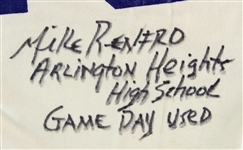 Mike Renfro
Arlington Heights
High School
Game Day Used